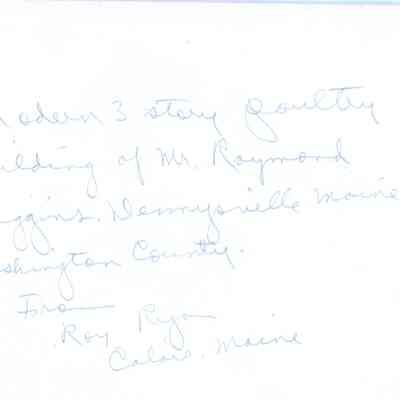 odern 3 story poultry
ilding of Mr. Raymond
iggins. Dennysville Maine
shington County.
From
Roy Ryan
Calais. Maine